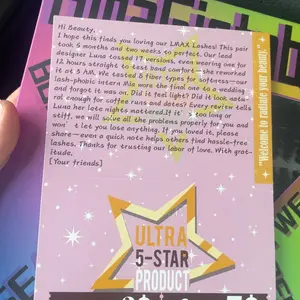 Hi Beauty,
I hope this finds you loving our LMAX Lashes! This pair
took 5 months and two weeks to perfect. Our lead
designer Luna tossed 17 versions, even wearing one for
12 hours straight to test band comfort—she reworked
it at 3 AM. We tested 8 fiber types for softness—our
lash-phobic intern Mia wore the final one to a wedding
and forgot it was on. Did it feel light? Did it look natu-
ral enough for coffee runs and dates? Every review tells
Luna her late nights mattered.If it's too long or
stiff, we will solve all the problems properly for you and
won't let you lose anything. If you loved it, please
share—even a quick note helps others find hassle-free
lashes. Thanks for trusting our labor of love. With grat-
itude,
[Your friends]
"Welcome to radiate your beauty."
ULTRA
5-STAR
PRODUCT